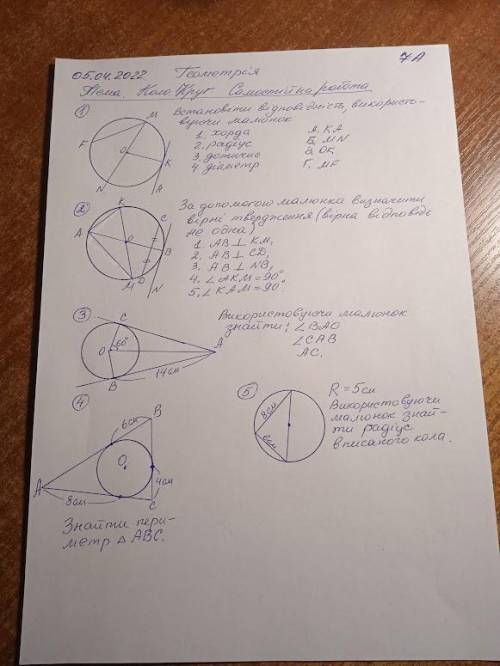 7А
05.04.2022 Геометрія
Тема Коло Круг Самостійна робота
1
Встановити відповідність, використо-
вуючи малюнок
1. хорда А. КА
2. радіус Б. MN
3 дотична В. ОК
4 діаметр Г. MF
M
F
O
K
N
A
2
За допомогою малюнка визначити
вірні твердження (вірна відповідь
не одна)
1. AB ⊥ KM,
2. AB ⊥ CD,
3. AB ⊥ NB,
4. ∠AKM = 90°,
5. ∠KAM = 90°
K
A
C
O
B
M
D
N
3
Використовуючи малюнок
знайти: ∠BAO
∠CAB
AC.
C
O
60°
A
B
14см
4
B
6см
O
4см
A
8см
C
Знайти пери-
метр △ABC.
5
8см
6см
R = 5см
Використовуючи
малюнок знай-
ти радіус
вписаного кола.